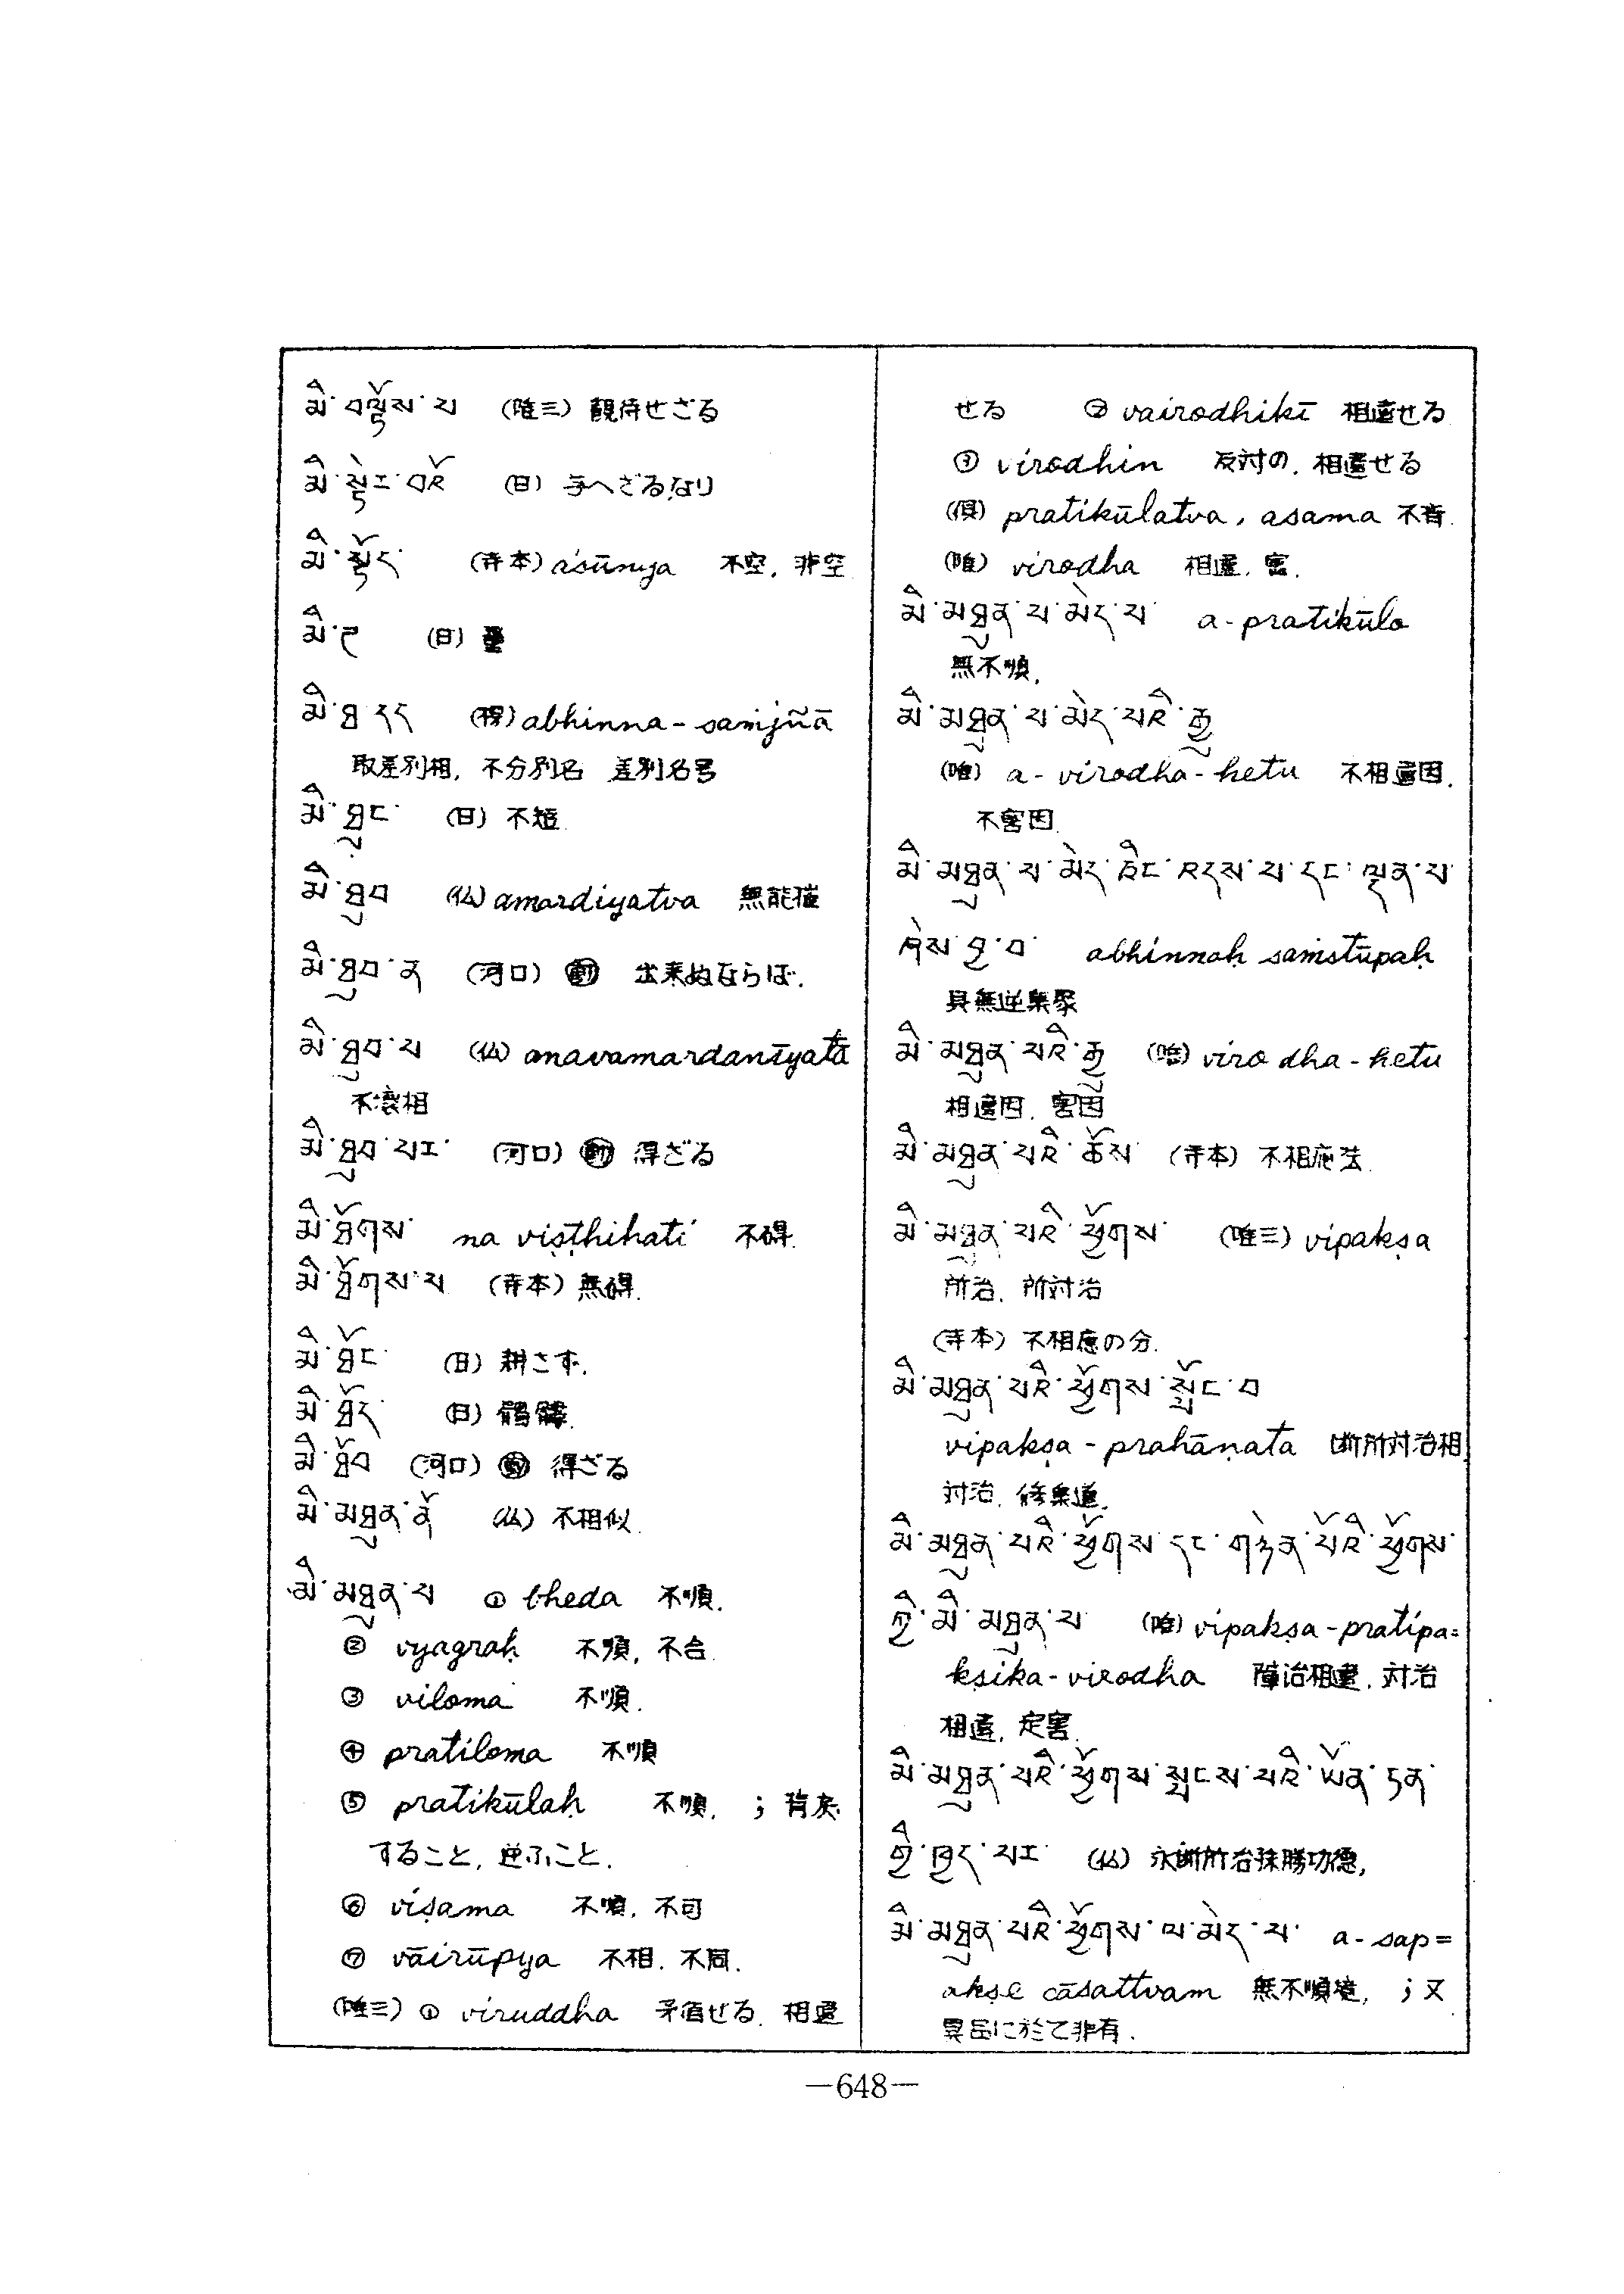 མི་བལྟོས་པ (唯三) 観待せざる
མི་སྟེར་བའོ (日) 与へざるなり
མི་སྟོད་ (寺本) aśūnya 不空, 非空
མི་ཏ (日)
མི་ཐ དད (稱) abhinna-saṁjñā
取差別相, 不分別名 差別名号
མི་ཐུང་ (日) 不短
མི་ཐུབ (仏) amardiyatva 無能摧
མི་ཐུབ་ན (河口) ㊥ 出来ぬならば.
མི་ཐུབ་པ (仏) anavamardanīyatā
不壊相
མི་ཐུབ་པར་ (河口) 得ざる
མི་ཐོགས་ na viṣṭhihati 不碍.
མི་ཐོགས་པ (寺本) 無碍.
མི་ཐོང་ (日) 耕さず.
མི་ཐོད་ (日) 髑髏.
མི་ཐོབ (河口) 得ざる
མི་མཐུན་ནོ (仏) 不相似.
མི་མཐུན་པ ① bheda 不順.
② vyagraḥ 不順, 不合.
③ viloma 不順.
④ pratiloma 不順
⑤ pratikūlaḥ 不順, ; 背戻
すること, 逆ふこと.
⑥ viṣama 不順, 不可
⑦ vāirūpya 不相. 不同.
(唯三) ① viruddha 矛盾せる. 相違
せる ② vairodhikī 相違せる
③ virodhin 反対の, 相違せる
(倶) pratikūlatva, asama 不背.
(唯) virodha 相違, 害.
མི་མཐུན་པ་མེད་པ་ a-pratikūlo
無不順,
མི་མཐུན་པ་མེད་པའི་རྒྱུ
(唯) a-virodha-hetu 不相違因.
不害因.
མི་མཐུན་པ་མེད་ཅིང་འདས་པ་དང་ལྡན་པ་
ཞེས་བྱ་བ་ abhinnaḥ saṁstūpaḥ
具無逆集聚
མི་མཐུན་པའི་རྒྱུ (唯) virodha-hetu
相違因, 害因
མི་མཐུན་པའི་ཆོས་ (寺本) 不相応法.
མི་མཐུན་པའི་ཕྱོགས་ (唯三) vipakṣa
所治, 所対治
(寺本) 不相応の分.
མི་མཐུན་པའི་ཕྱོགས་སྤོང་བ
vipakṣa-prahāṇatā 断所対治相
対治, 修集道.
མི་མཐུན་པའི་ཕྱོགས་དང་གཉེན་པོའི་ཕྱོགས་
ཀྱི་མི་མཐུན་པ་ (唯) vipakṣa-pratipa=
kṣika-virodha 障治相違, 対治
相違, 定害.
མི་མཐུན་པའི་ཕྱོགས་སྤངས་པའི་ཡོན་ཏན་
ཀྱི་ཁྱད་པར་ (仏) 永断所治殊勝功徳,
མི་མཐུན་པའི་ཕྱོགས་ལ་མེད་པ་ a-sap=
akṣe cāsattvam 無不順, ; 又
異品に於て非有.
—648—